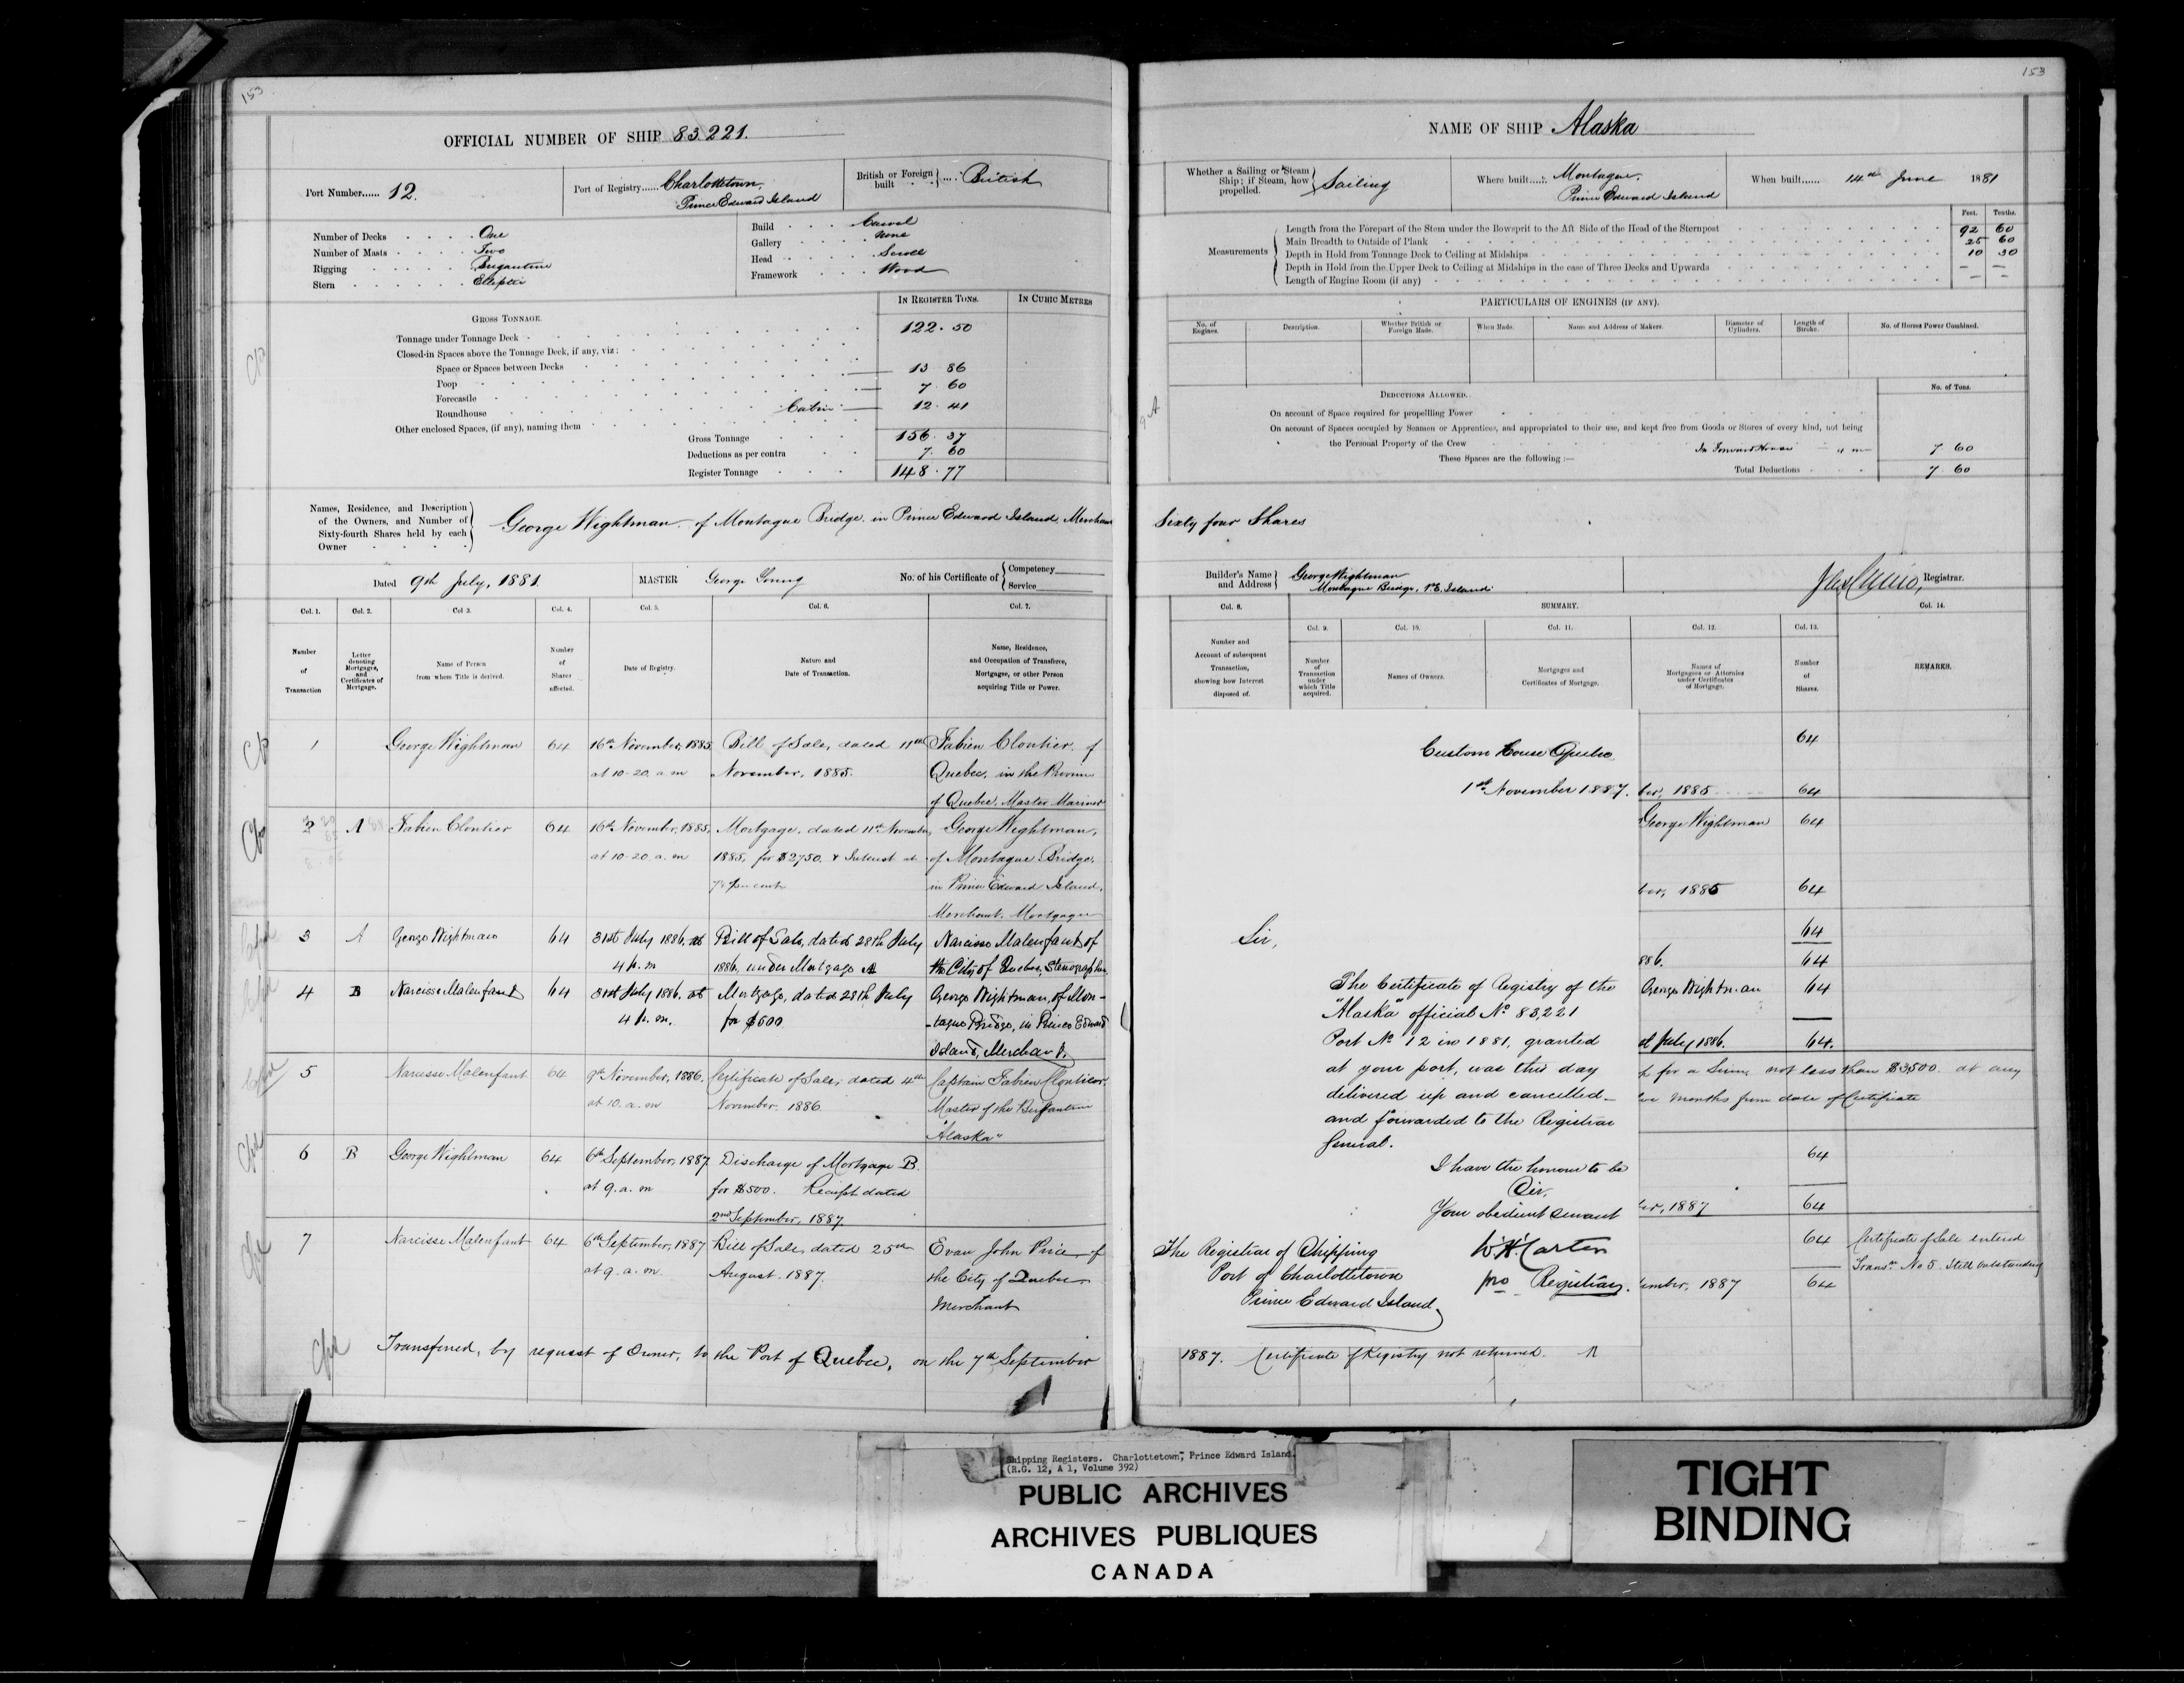 153
OFFICIAL NUMBER OF SHIP 83.221.
Port Number...... 12.
Port of Registry...... Charlottetown,
Prince Edward Island
British or Foreign built .... British
Number of Decks One
Number of Masts Two
Rigging Brigantine
Stern Elliptic
Build Carvel
Gallery None
Head Scroll
Framework Wood
IN REGISTER TONS. IN CUBIC METRES
GROSS TONNAGE.
Tonnage under Tonnage Deck 122.50
Closed-in Spaces above the Tonnage Deck, if any, viz:
Space or Spaces between Decks
Poop 13 86
Forecastle 7.60
Roundhouse Cabin 12.41
Other enclosed Spaces, (if any), naming them
Gross Tonnage 156.37
Deductions as per contra 7.60
Register Tonnage 148.77
Names, Residence, and Description
of the Owners, and Number of
Sixty-fourth Shares held by each
Owner
George Wightman of Montague Bridge in Prince Edward Island, Merchant
Dated 9th July, 1881.
MASTER George Young
No. of his Certificate of { Competency
Service
Col. 1. Col. 2. Col 3. Col. 4. Col. 5. Col. 6. Col. 7.
Number of Transaction
Letter denoting Mortgages, and Certificates of Mortgage.
Name of Person from whom Title is derived.
Number of Shares affected.
Date of Registry.
Nature and Date of Transaction.
Name, Residence, and Occupation of Transferee, Mortgagee, or other Person acquiring Title or Power.
1 George Wightman 64 16th November, 1885, Bill of Sale, dated 11th Fabien Cloutier of
at 10-20 a.m November, 1885. Quebec, in the Province
of Quebec, Master Mariner
2 A Fabien Cloutier 64 16th November, 1885, Mortgage, dated 11th November, George Wightman,
at 10-20 a.m 1885, for $2750 & Interest at of Montague Bridge,
per cent in Prince Edward Island,
Merchant, Mortgagee
3 A George Wightman 64 31st July 1886, at Bill of Sale, dated 28th July Narcisse Malenfant of
4 p.m 1886, under Mortgage A the City of Quebec, Stenographer
4 B Narcisse Malenfant 64 31st July 1886, at Mortgage, dated 28th July George Wightman, of Mon-
4 p.m. for $500 -tague Bridge, in Prince Edward
Island, Merchant.
5 Narcisse Malenfant 64 9th November, 1886, Certificate of Sale, dated 4th Captain Fabien Cloutier
at 10. a.m November 1886 Master of the Brigantine
"Alaska"
6 B George Wightman 64 6th September, 1887 Discharge of Mortgage B.
at 9. a.m for $500. Receipt dated
2nd September, 1887.
7 Narcisse Malenfant 64 6th September, 1887 Bill of Sale, dated 25th Evan John Price of
at 9. a.m. August, 1887. the City of Quebec
Merchant
Transferred, by request of Owner, to the Port of Quebec, on the 7th September
153
NAME OF SHIP Alaska
Whether a Sailing or Steam Ship; if Steam, how propelled. } Sailing
Where built..... Montague,
Prince Edward Island
When built...... 14th June 1881
Feet. Tenths.
Measurements
Length from the Forepart of the Stem under the Bowsprit to the Aft Side of the Head of the Sternpost 92 60
Main Breadth to Outside of Plank 25 60
Depth in Hold from Tonnage Deck to Ceiling at Midships 10 30
Depth in Hold from the Upper Deck to Ceiling at Midships in the case of Three Decks and Upwards — —
Length of Engine Room (if any) — —
PARTICULARS OF ENGINES (IF ANY).
No. of Engines. Description. Whether British or Foreign Made. When Made. Name and Address of Makers. Diameter of Cylinders. Length of Stroke. No. of Horses Power Combined.
DEDUCTIONS ALLOWED. No. of Tons.
On account of Space required for propelling Power
On account of Spaces occupied by Seamen or Apprentices, and appropriated to their use, and kept free from Goods or Stores of every kind, not being
the Personal Property of the Crew In Forward House 7 60
These Spaces are the following :—
Total Deductions 7 60
Sixty four Shares
Builder's Name and Address } George Wightman
Montague Bridge, P.E. Island
Registrar.
Col. 8. SUMMARY. Col. 14.
Col. 9. Col. 10. Col. 11. Col. 12. Col. 13.
Number and Account of subsequent Transaction, showing how Interest disposed of.
Number of Transaction under which Title acquired.
Names of Owners.
Mortgages and Certificates of Mortgage.
Names of Mortgagees or Attornies under Certificates of Mortgage.
Number of Shares.
REMARKS.
Custom House Quebec
1st November 1887.
Sir,
The Certificate of Registry of the
"Alaska" official No 83,221
Port No 12 in 1881, granted
at your port, was this day
delivered up and cancelled
and forwarded to the Registrar
General.
I have the honour to be
Sir,
Your obedient servant
W H Carter
pro Registrar.
The Registrar of Shipping
Port of Charlottetown
Prince Edward Island
64
ber, 1885 64
George Wightman 64
ber, 1885 64
64
886. 64
George Wightman 64
st July 1886. 64.
for a Sum, not less than $3,500 at any
months from date of Certificate
64
er, 1887 64
64 Certificate of Sale entered
Transn No 5. Still outstanding
ember, 1887 64
1887. Certificate of Registry not returned.
Shipping Registers. Charlottetown, Prince Edward Island.
(R.G. 12, A 1, Volume 392)
PUBLIC ARCHIVES
ARCHIVES PUBLIQUES
CANADA
TIGHT
BINDING